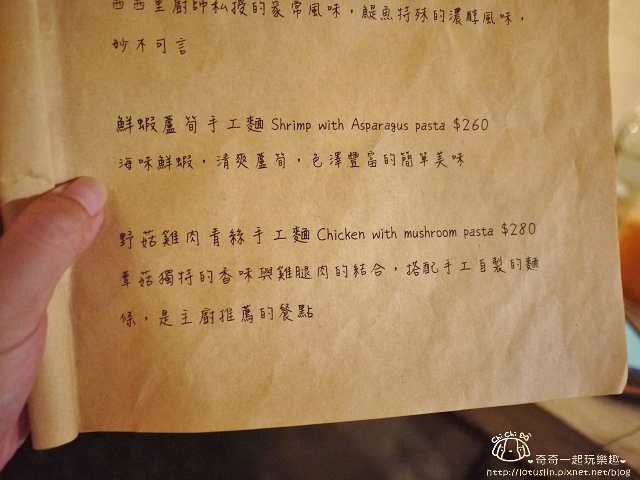 西西里廚師私授的家常風味，鯷魚特殊的濃醇風味，
妙不可言
鮮蝦蘆筍手工麵 Shrimp with Asparagus pasta $260
海味鮮蝦，清爽蘆筍，色澤豐富的簡單美味
野菇雞肉青絲手工麵 Chicken with mushroom pasta $280
蕈菇獨特的香味與雞腿肉的結合，搭配手工自製的麵
條，是主廚推薦的餐點
Chi Chi Bo
♥奇奇一起玩樂趣♥
http://lotuslin.pixnet.net/blog